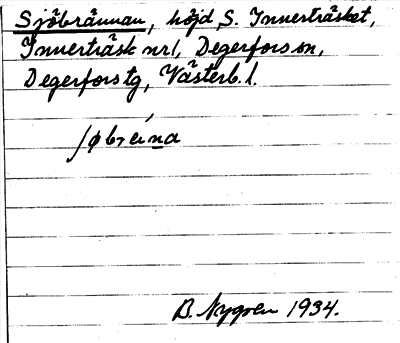 Sjöbrännan, höjd, S. Innerträsket,
Innerträsk nr 1, Degerfors sn,
Degerfors tg, Västerb. l.
B. Nygren 1934.